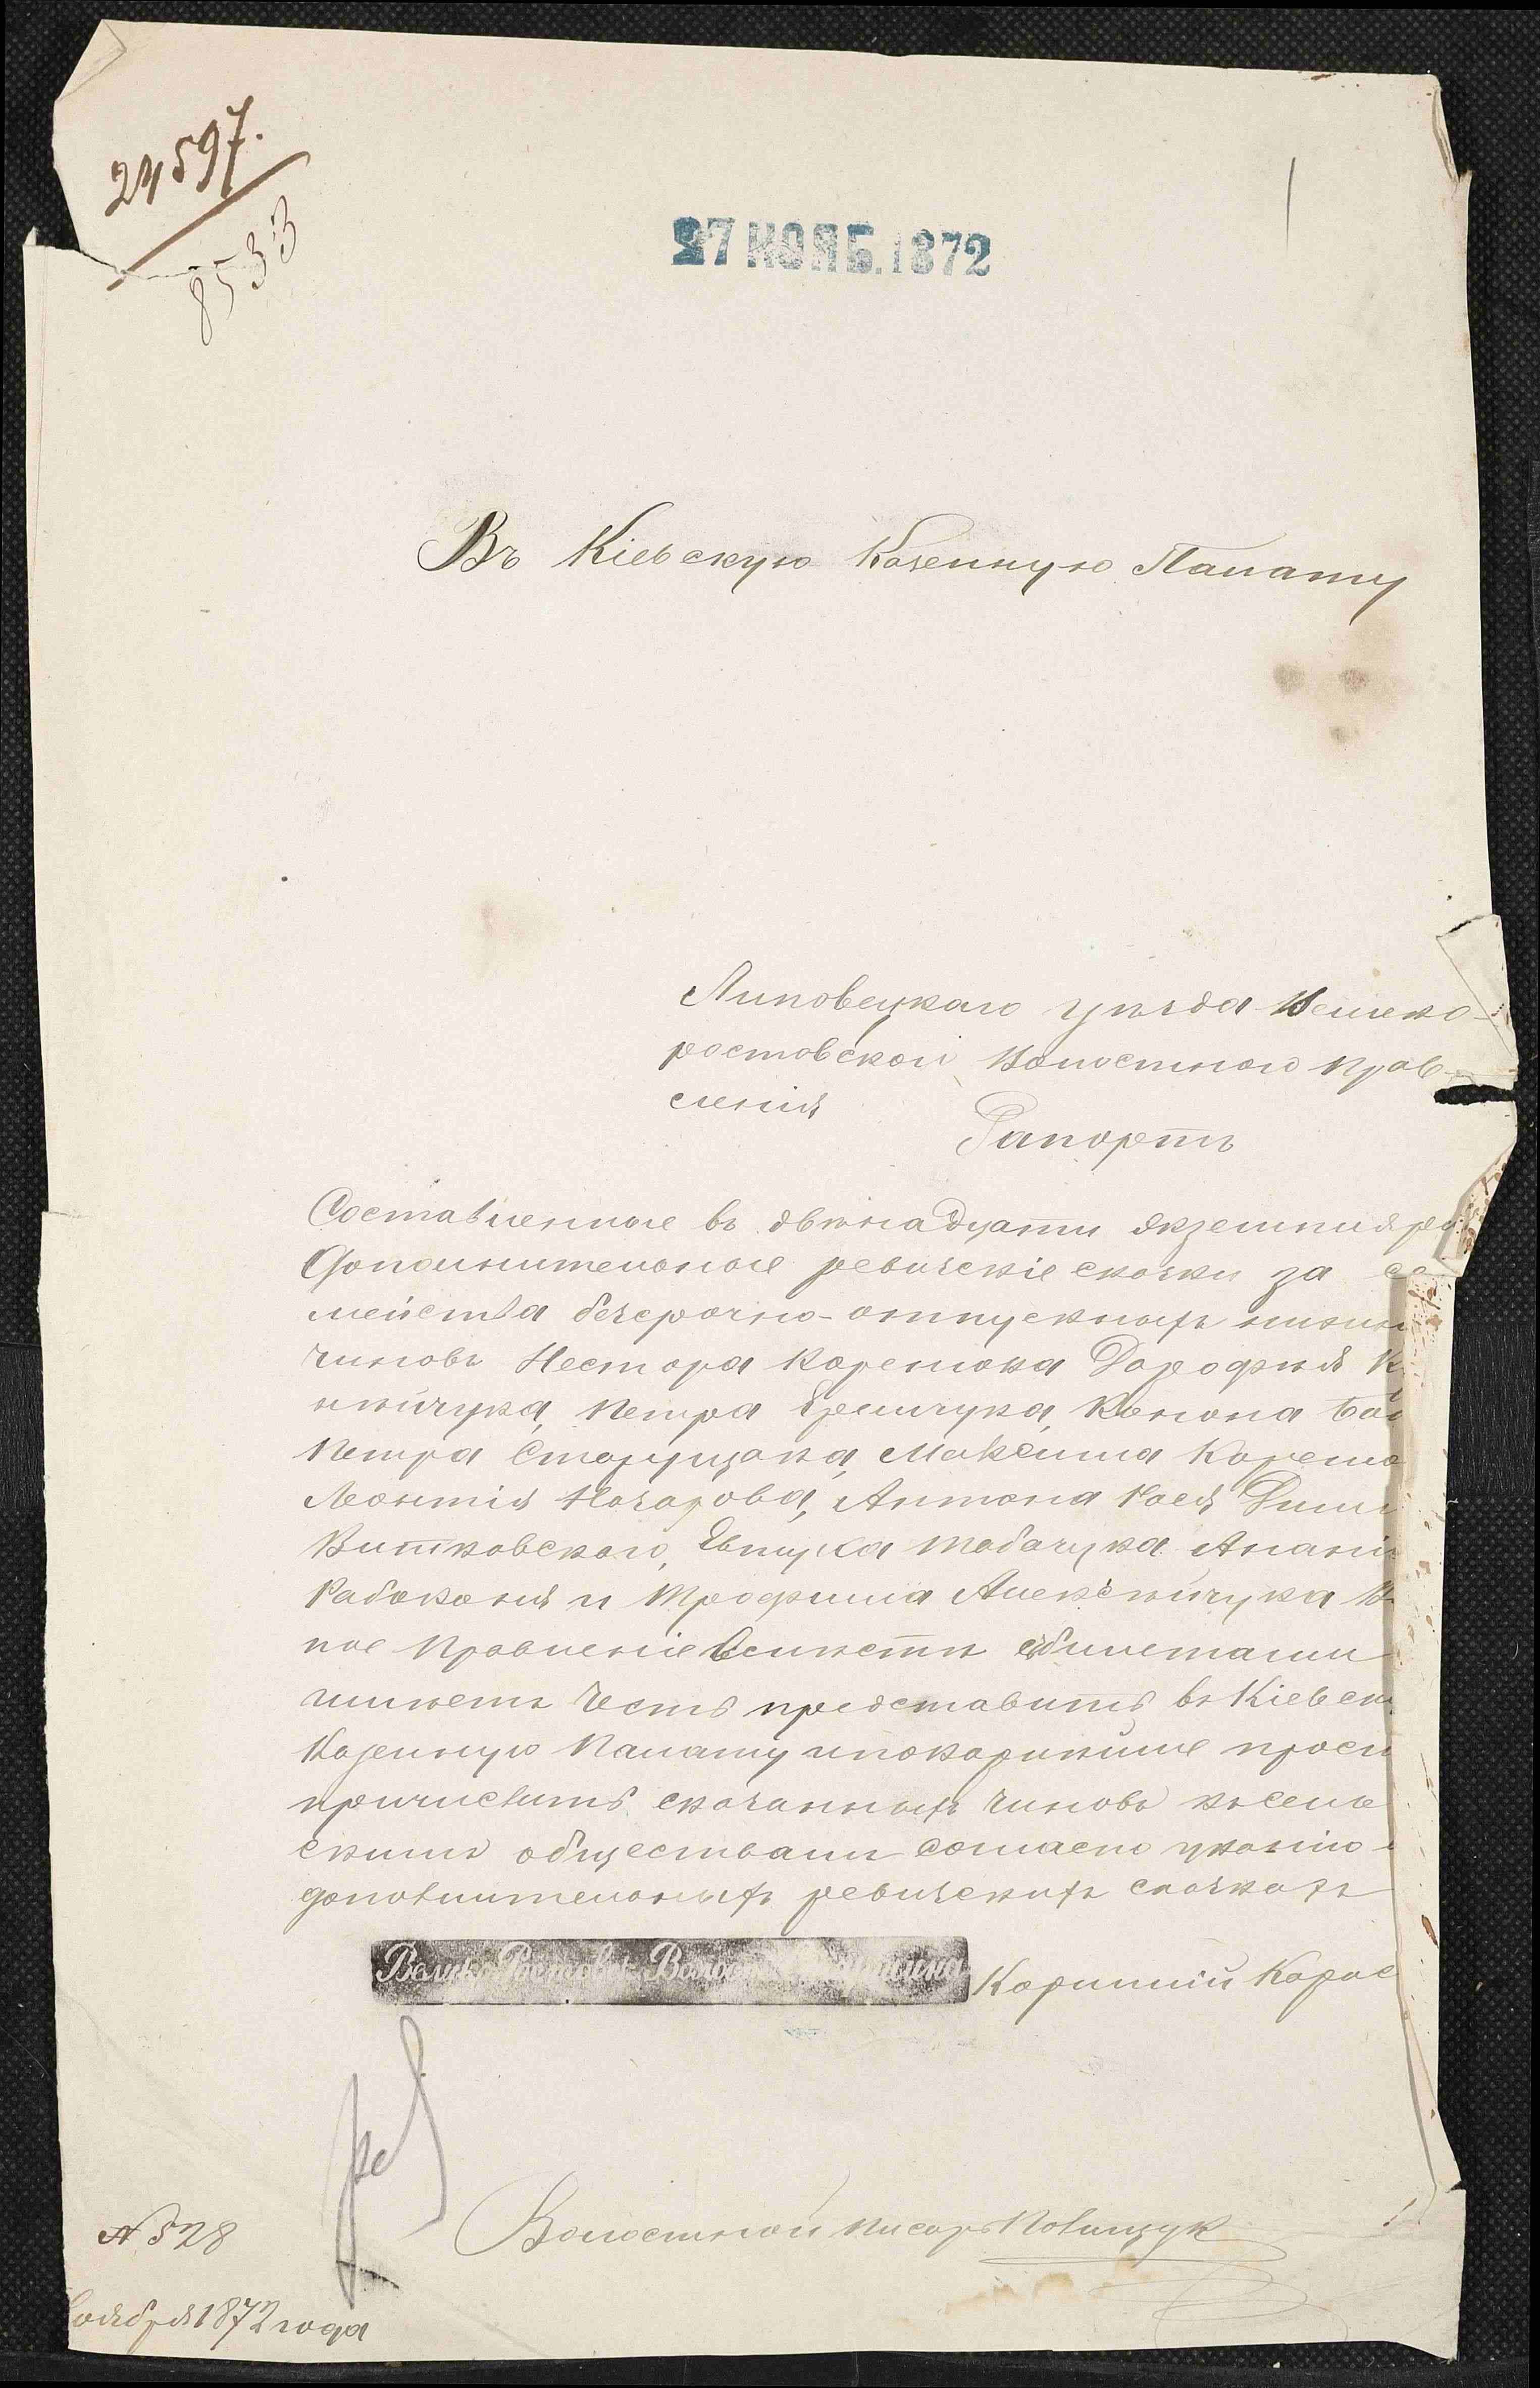 24597.
8533
27 НОЯБ. 1872
Въ Кіевскую Казенную Палату
Липовецкаго уѣзда Велико-
ростовской Волостного Прав-
ленія
Рапортъ
Составленные въ двѣнадцати экземпляра
дополнительные ревизскіе сказки за се
мейства безсрочно-отпускныхъ нижни
чиновъ Нестора Каренюка Дорофѣя К
нѣйчука, Петра Яремчука, Конона Бой
Петра Сторущака, Максима Корено
Леонтія Назарова, Антона Кося Дими
Витковскаго, Евтуха Табачука Анані
Рабоконя и Трофима Алексѣйчука В
ное Правленіе вмѣстѣ съ билетами
имѣетъ честь представить въ Кіевск
Казенную Палату и покорнѣйше проси
причислить сказанныхъ чиновъ къ сель
скимъ обществамъ согласно указнію
дополнительныхъ ревизскихъ сказкахъ
Велико-Ростовск. Волост. Старшина Корнилій Карас
Волостной писарь Полищук
№ 528
оября 1872 года